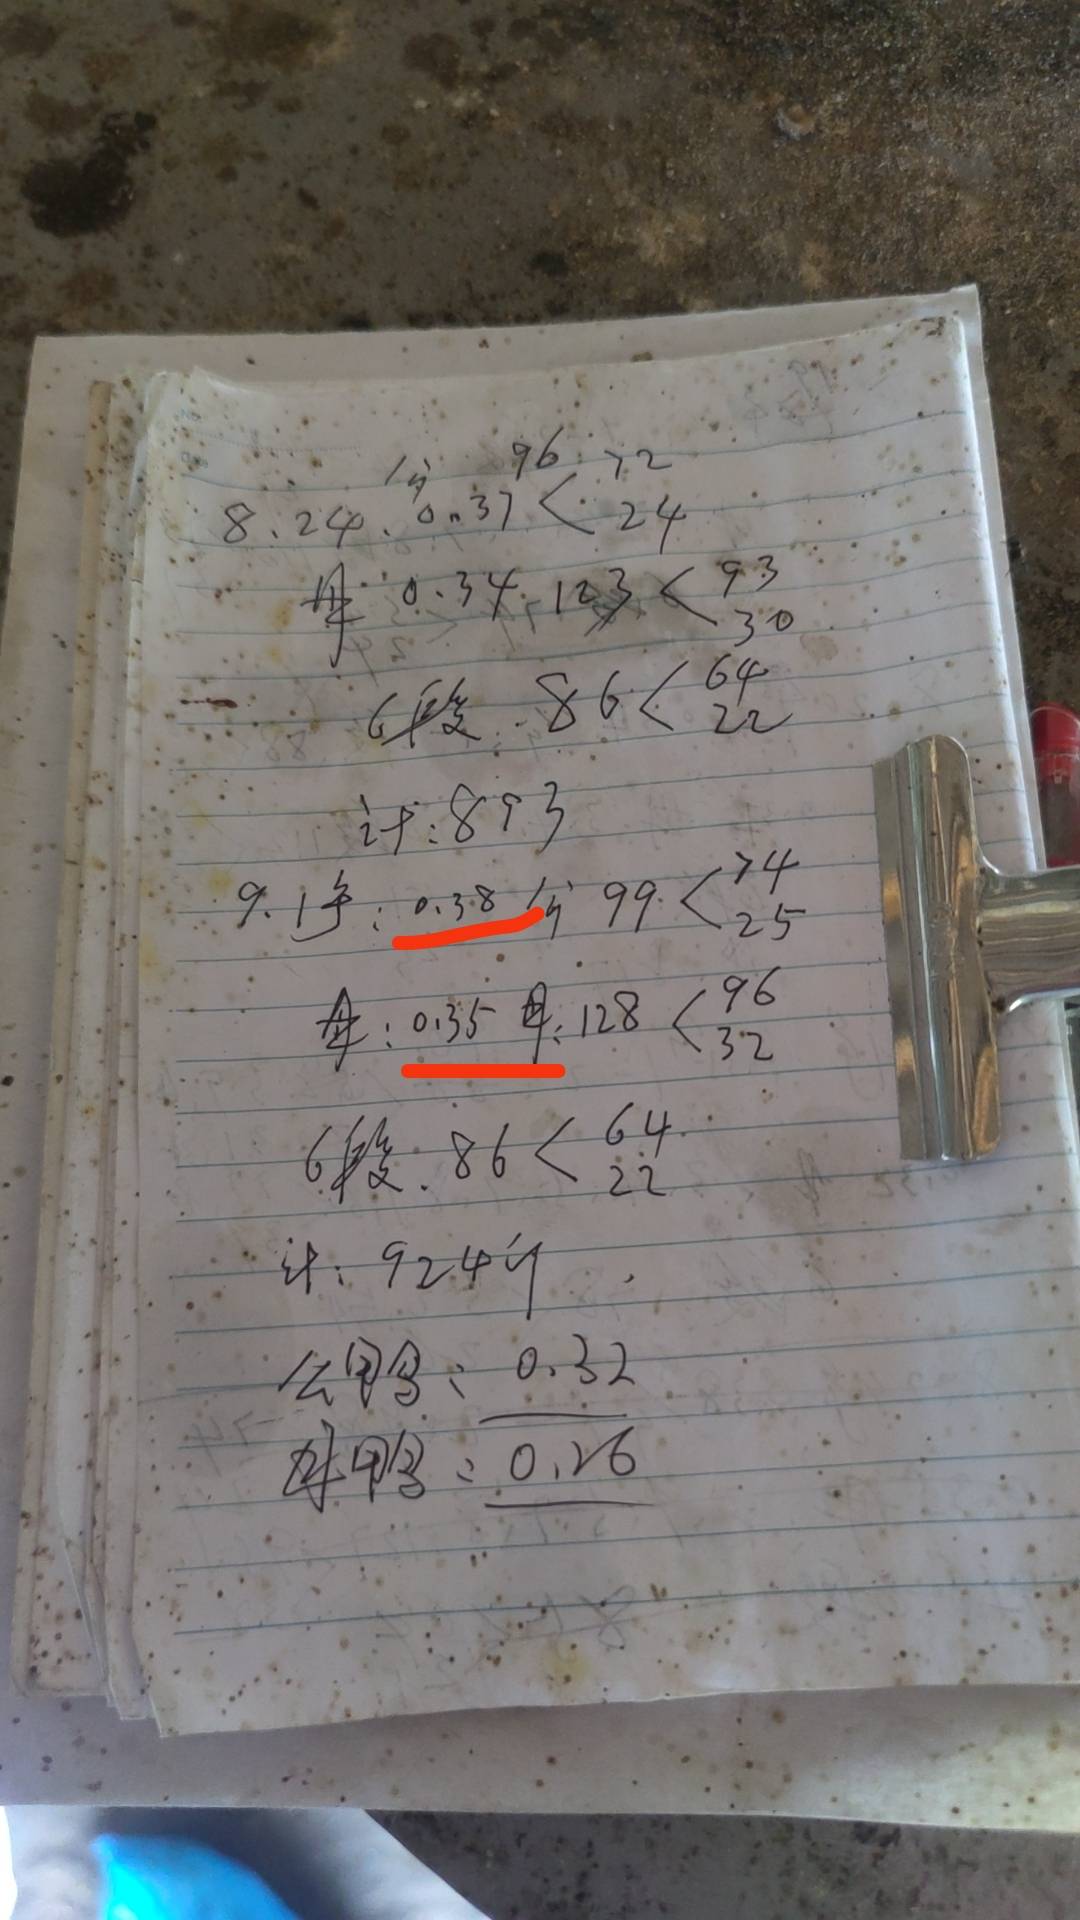 公 96 72
8.24. 0.37 < 24
母: 0.34. 123 < 93
30
6段. 86 < 64
22
计:893
9.1号: 0.38 公 99 < 74
25
母: 0.35 母: 128 < 96
32
6段. 86 < 64
22
计: 924斤
公甲鸟: 0.32
母甲鸟: 0.26